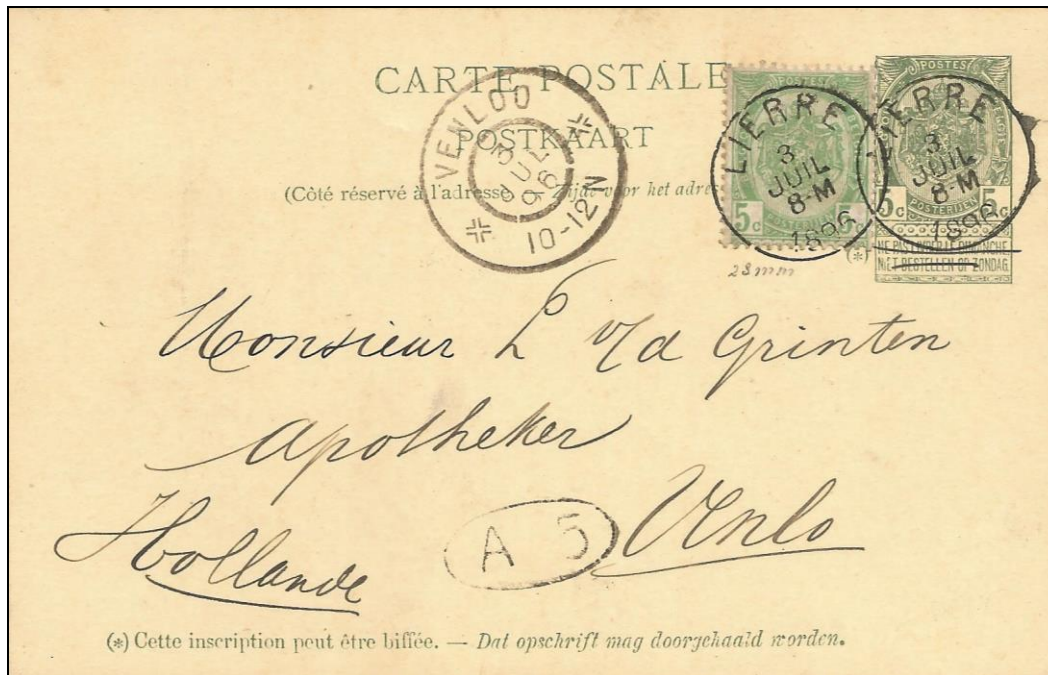 CARTE POSTALE
POSTKAART
(Côté réservé à l'adresse Zijde voor het adres
VENLOO
3
JUL
96
10-12 N
POSTES
5c 5c
POSTERIJEN
LIERRE
3
JUIL
8-M
1896
POSTES
5c 5c
POSTERIJEN
NE PAS LIVRER LE DIMANCHE
NIET BESTELLEN OP ZONDAG.
LIERRE
3
JUIL
8-M
1896
(*)
28mm
Monsieur L v/d Grinten
Apotheker
Venlo
Hollande
A 5
(*) Cette inscription peut être biffée. — Dat opschrift mag doorgehaald worden.